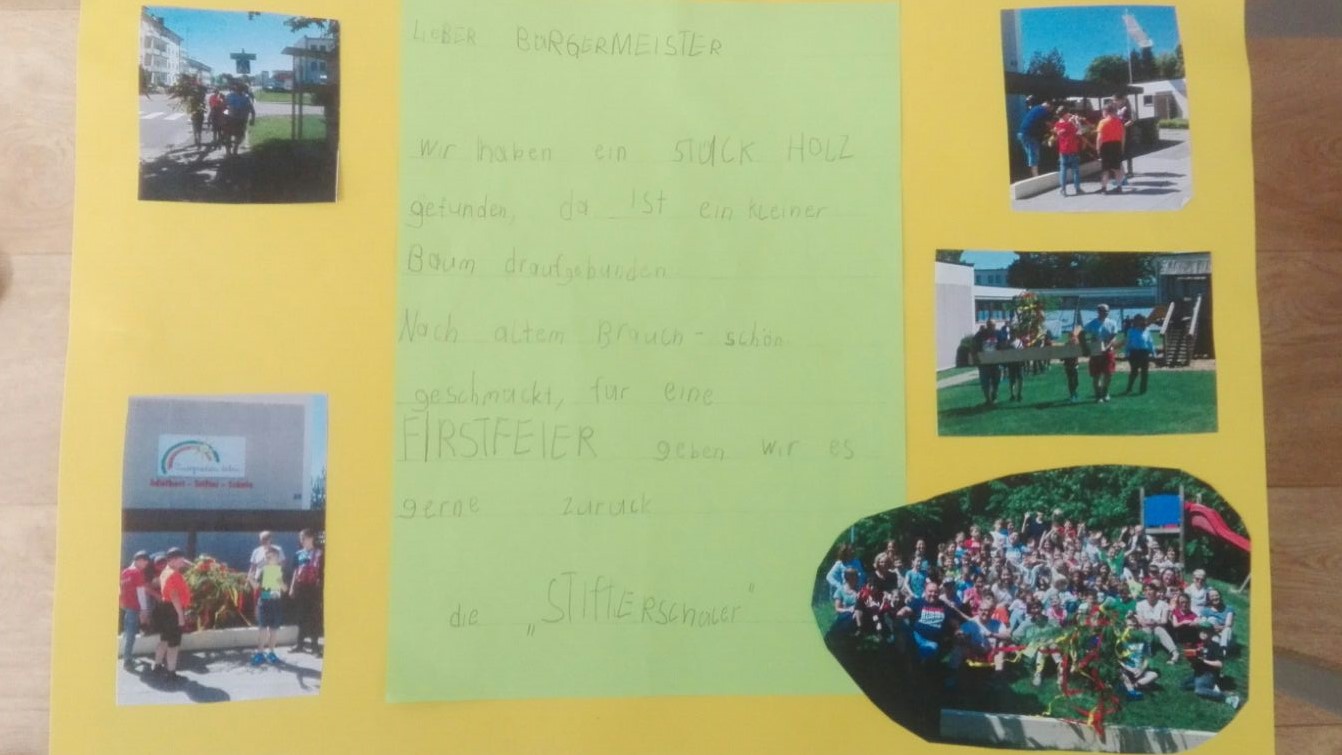 LIEBER BÜRGERMEISTER
Wir haben ein STÜCK HOLZ
gefunden, da ist ein kleiner
Baum draufgebunden.
Nach altem Brauch - schön
geschmückt, für eine
FIRSTFEIER geben wir es
gerne zurück
die „STIFTERSCHÜLER"
Adalbert - Stifter - Schule